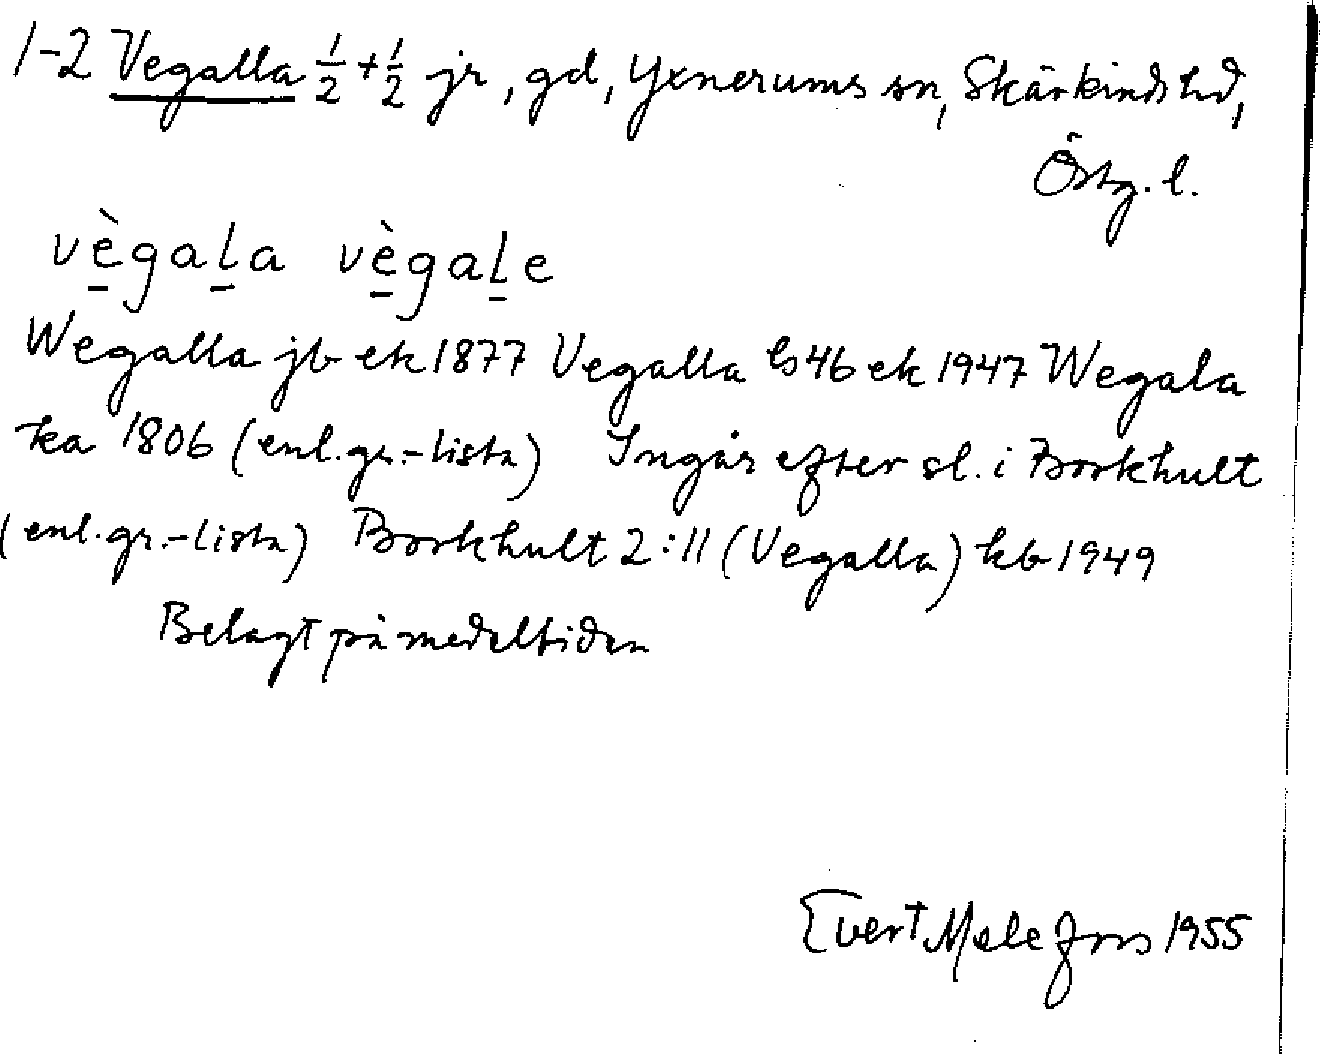 1-2 Vegalla ½+½ jr, gd, Yxnerums sn, Skärkinds hd,
Östg. l.
vègaḻa vègaḻe
Wegalla jb ek 1877 Vegalla bs 46 ek 1947 Wegala
ka 1806 (enl. gr.-lista) Ingår efter sl. i Borkhult
(enl. gr.-lista) Borkhult 2:11 (Vegalla) kb 1949
Belagt på medeltiden
Evert Melefors 1955